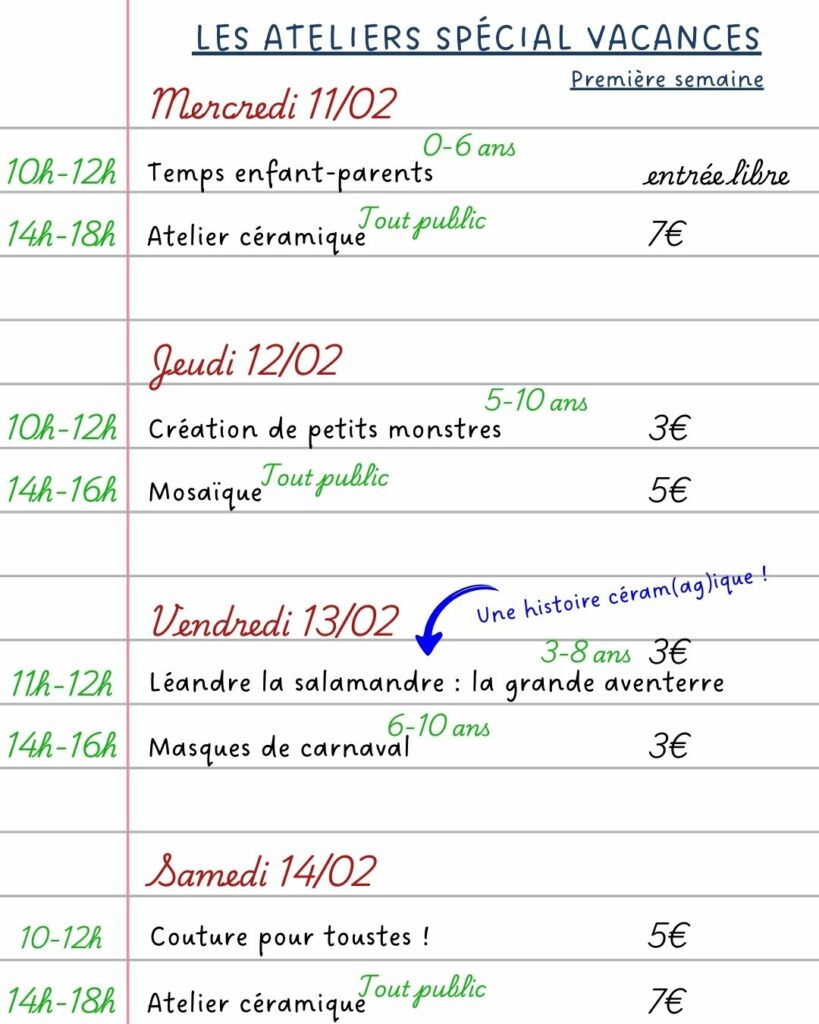 LES ATELIERS SPÉCIAL VACANCES
Première semaine
Mercredi 11/02
0-6 ans
10h-12h Temps enfant-parents entrée libre
Tout public
14h-18h Atelier céramique 7€
Jeudi 12/02
5-10 ans
10h-12h Création de petits monstres 3€
Tout public
14h-16h Mosaïque 5€
Une histoire céram(ag)ique !
Vendredi 13/02
3-8 ans 3€
11h-12h Léandre la salamandre : la grande aventerre
6-10 ans
14h-16h Masques de carnaval 3€
Samedi 14/02
10-12h Couture pour toustes ! 5€
Tout public
14h-18h Atelier céramique 7€